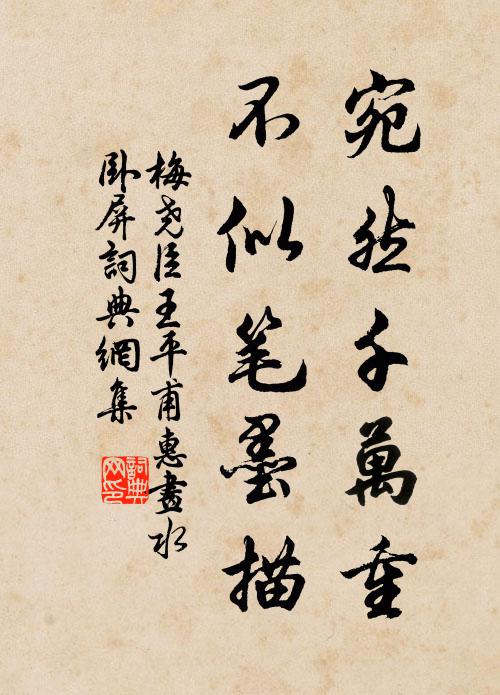 宛然千萬重
不似笔墨描
梅尧臣王平甫惠畫水
卧屏詞典網集
詞典网印